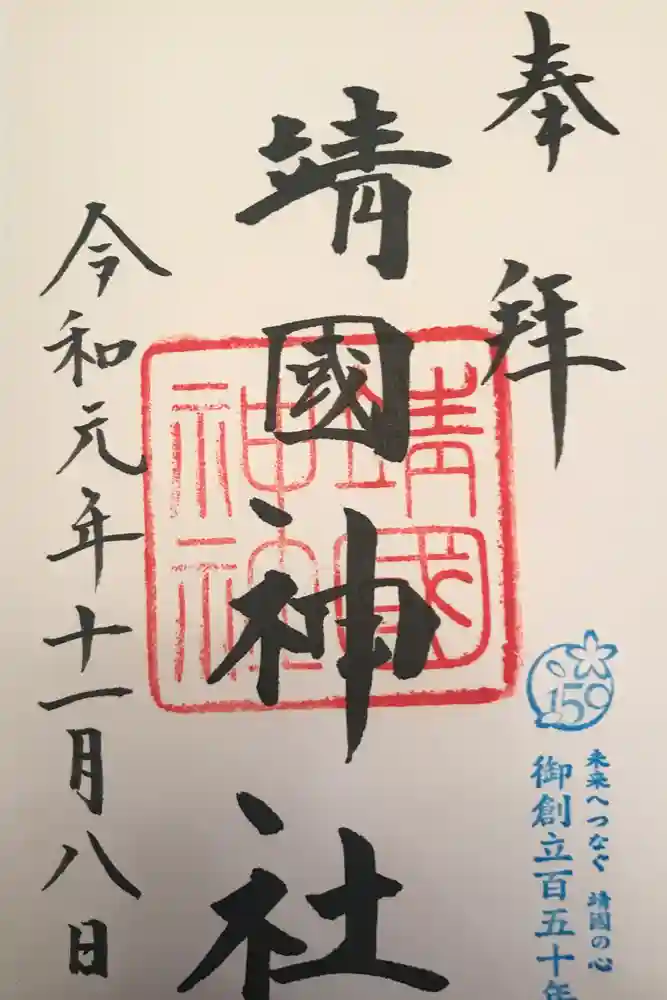 奉拜
靖國神社
靖國
神社
令和元年十一月八日
150
未来へつなぐ 靖國の心
御創立百五十年